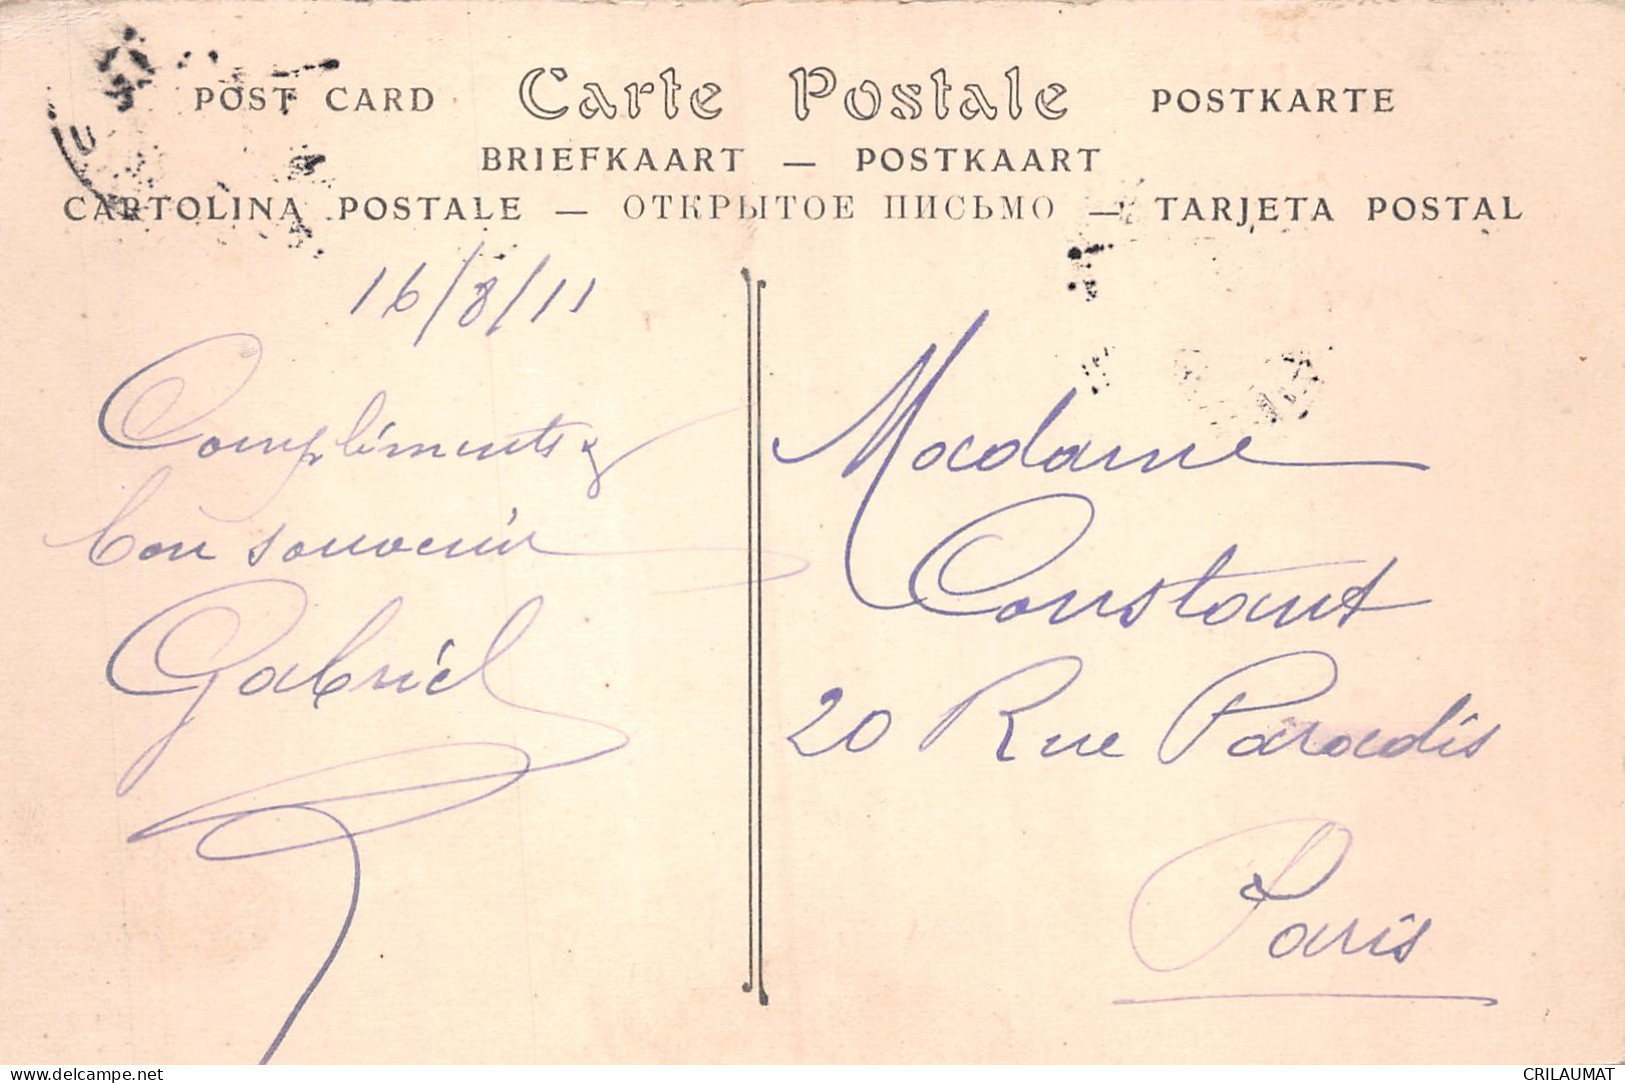 POST CARD Carte Postale POSTKARTE
BRIEFKAART — POSTKAART
CARTOLINA POSTALE — ОТКРЫТОЕ ПИСЬМО — TARJETA POSTAL
16/8/11
Compliments &
bon souvenir
Gabriel
Madame
Constant
20 Rue Paradis
Paris
www.delcampe.net
CRILAUMAT